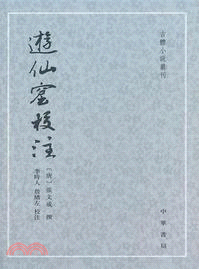 古體小說叢刊
遊仙窟校注
〔唐〕張文成 撰
李時人 詹緒左 校注
中華書局
三民